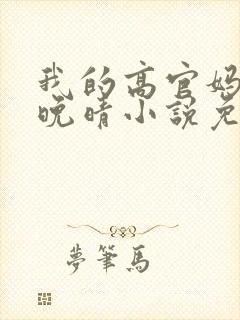 我的高官妈
晚晴小说免
夢筆馬